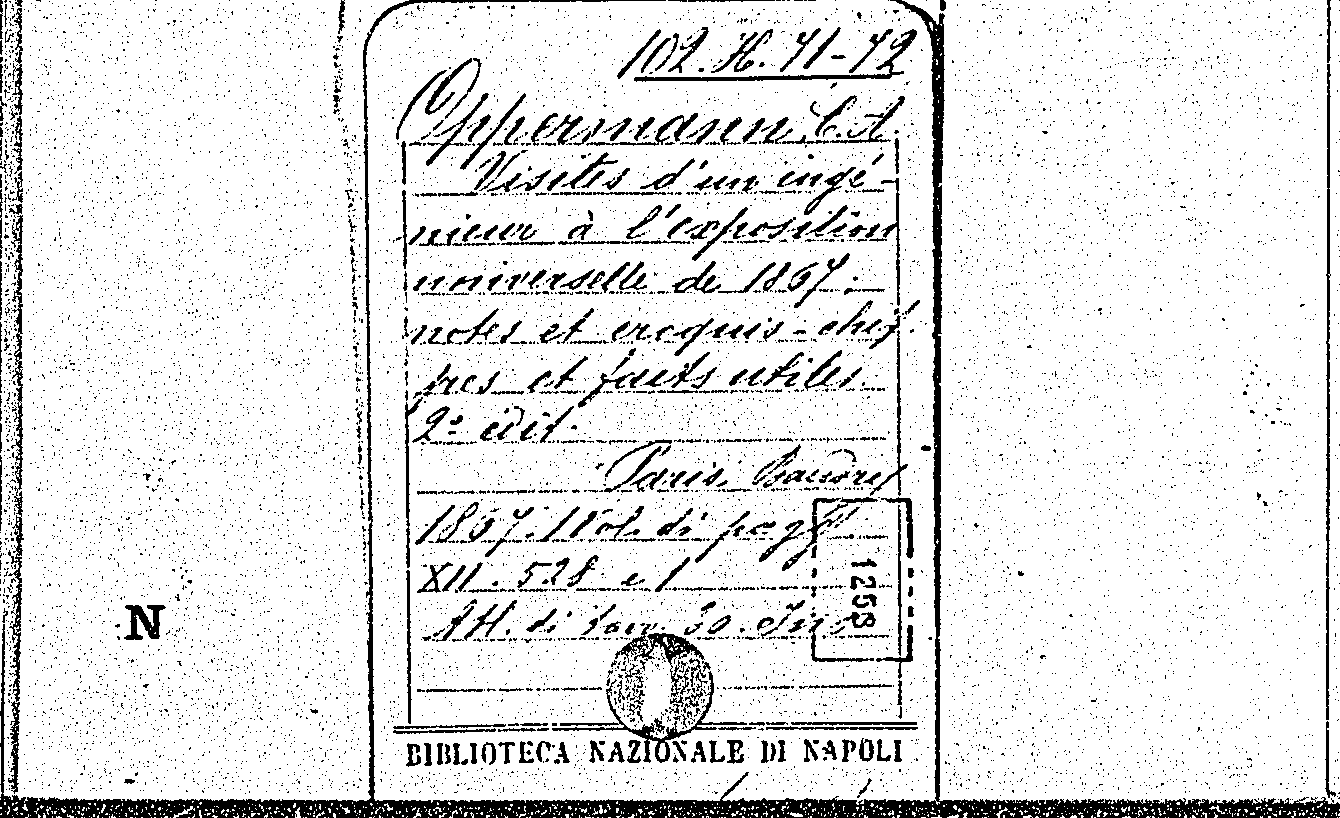 102. H. 71-72
Oppermann, C. A.
Visites d'un ingé-
nieur à l'exposition
universelle de 1867.
notes et croquis - chif-
fres et faits utiles.
2ᵉ édit.
Paris, Baudry
1867. 1 Vol. di pagg.
XII. 528 e 1
Atl. di tav. 30. In
1258
N
BIBLIOTECA NAZIONALE DI NAPOLI